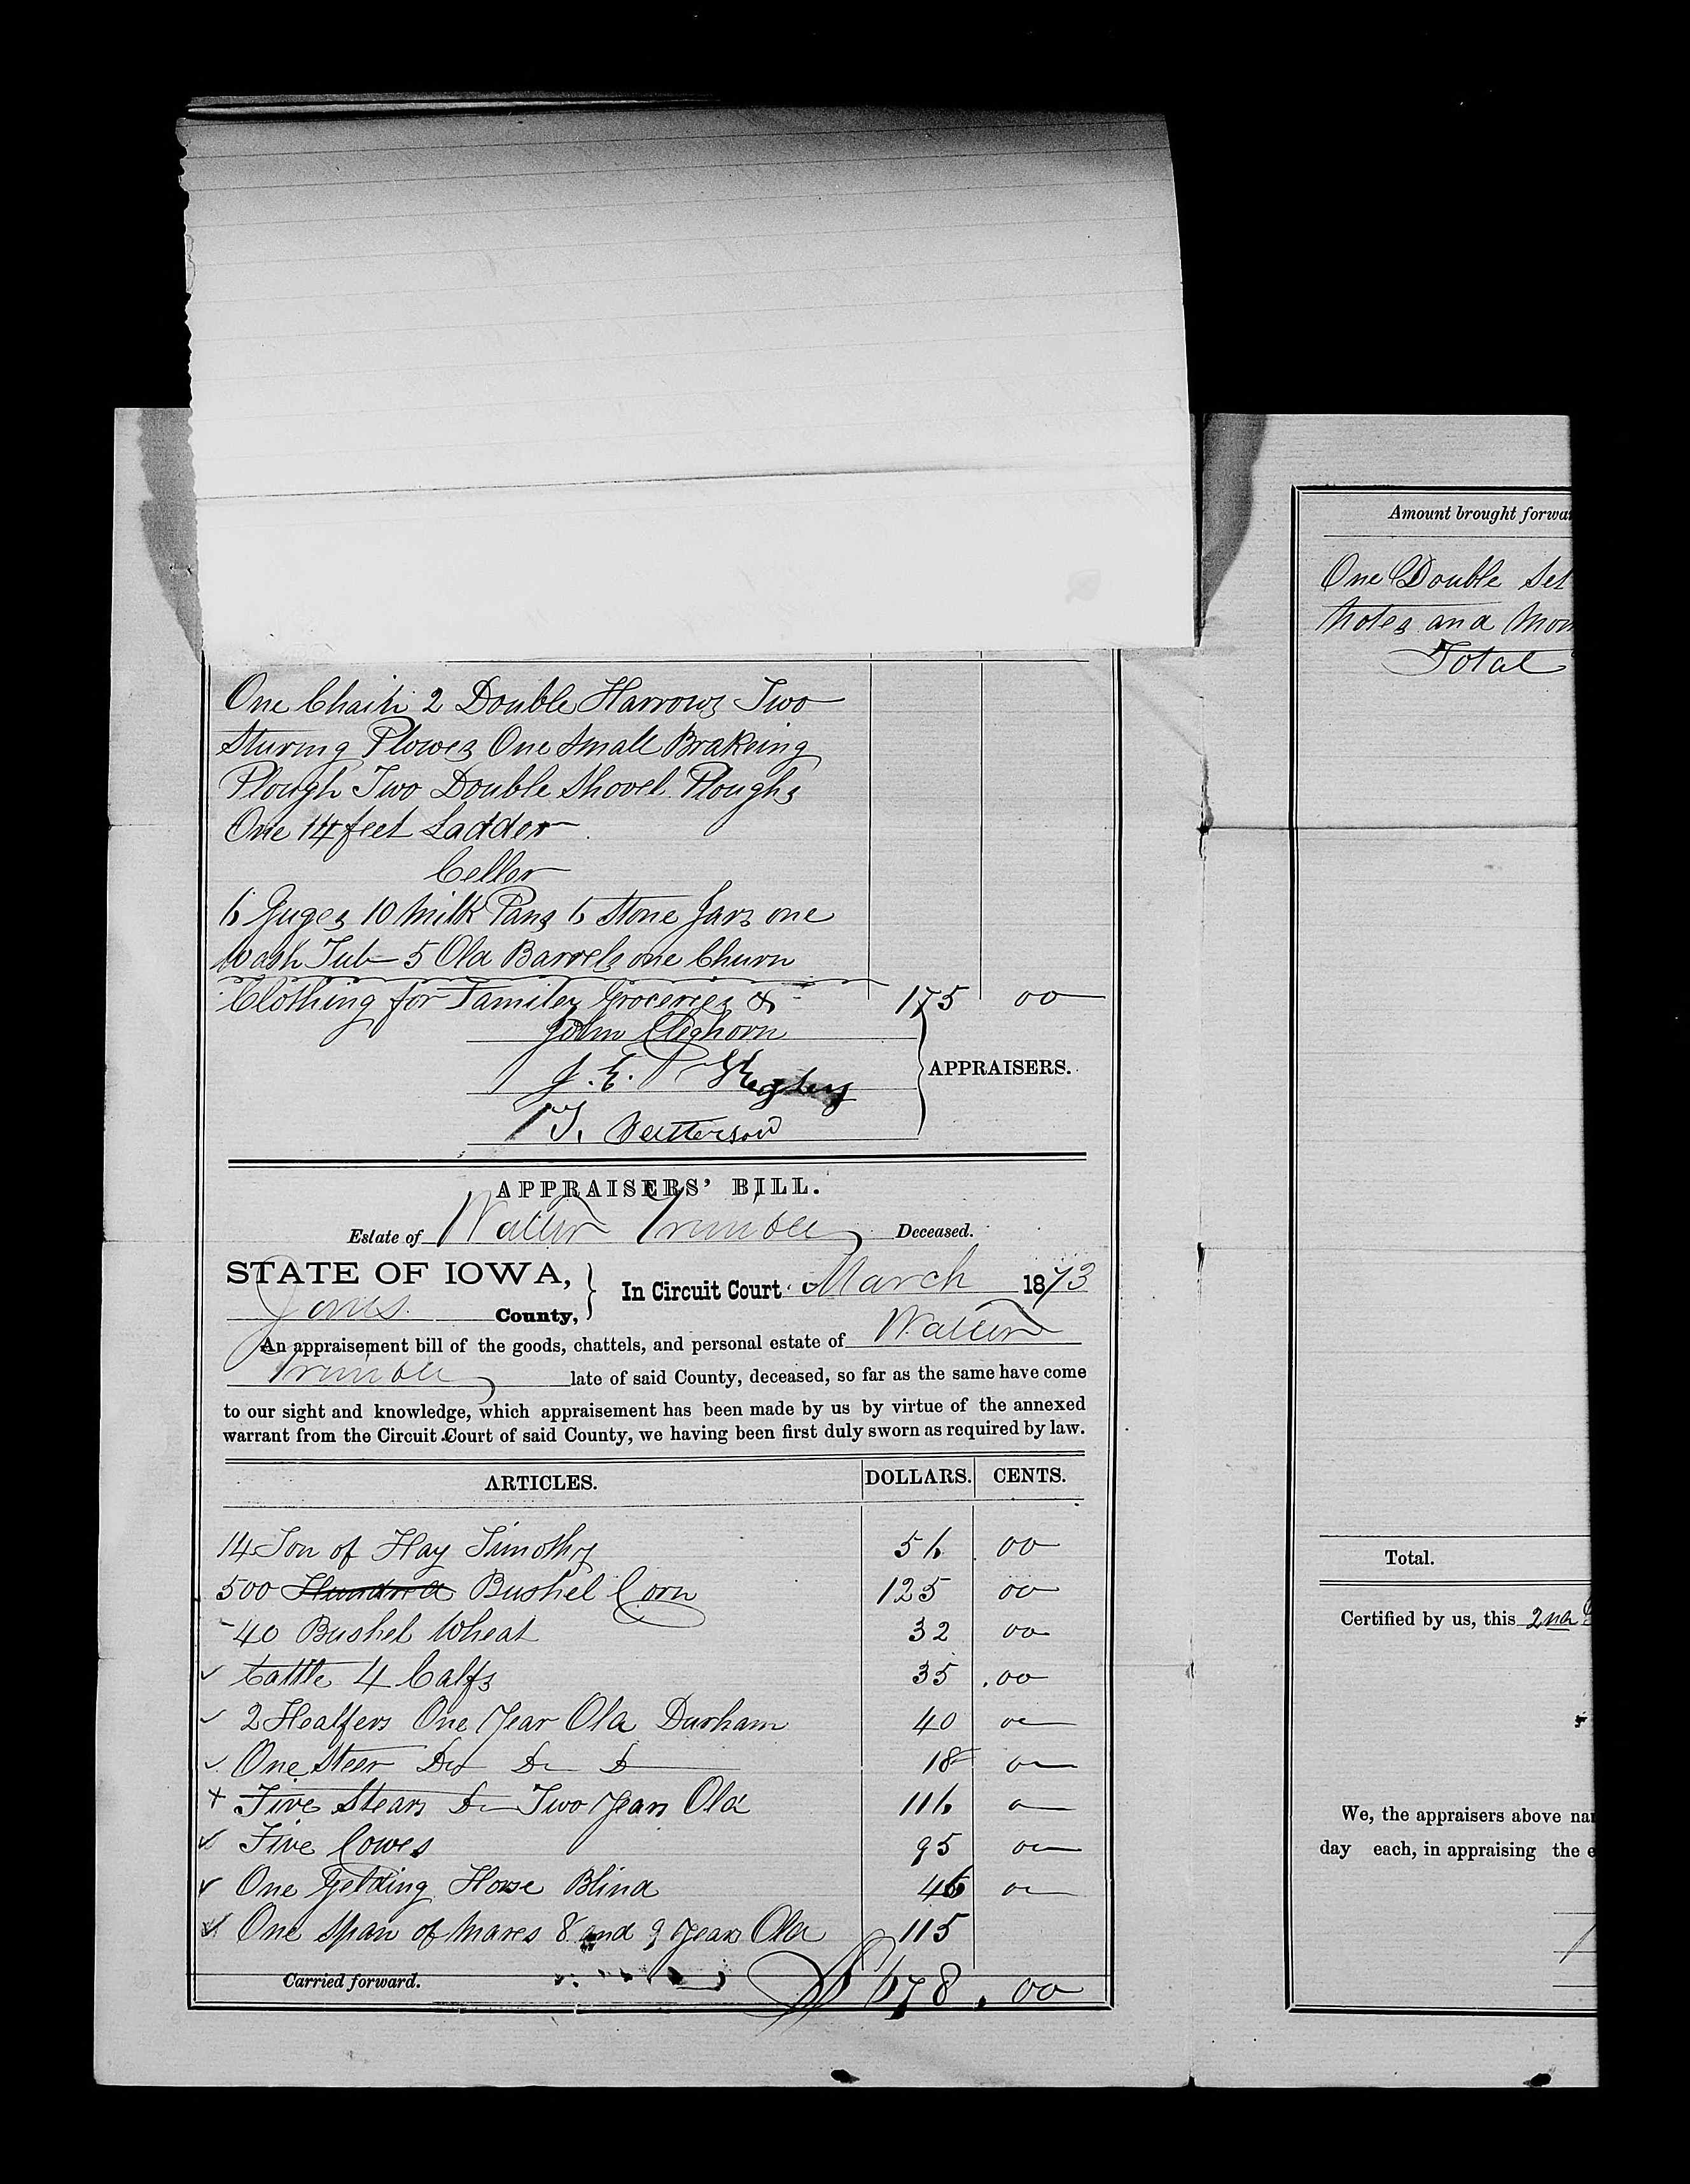 One Chain 2 Double Harrows Two
Sturing Plowes One Small Brakeing
Plough Two Double Shovel Ploughs
One 14 feet Ladder
Celler
6 Juges 10 Milk Pans 6 Stone Jars one
Wash Tub 5 Old Barrels one Churn
Clothing for Familey Groceries & 175 00
John Cleghorn
J. E.
T. Patterson
APPRAISERS.
APPRAISERS' BILL.
Estate of Walter Trimble Deceased.
STATE OF IOWA,
Jones County,
In Circuit Court March 1873
An appraisement bill of the goods, chattels, and personal estate of Walter
Trimble late of said County, deceased, so far as the same have come
to our sight and knowledge, which appraisement has been made by us by virtue of the annexed
warrant from the Circuit Court of said County, we having been first duly sworn as required by law.
ARTICLES. DOLLARS. CENTS.
14 Ton of Hay Timothy 56 00
500 Hundred Bushel Corn 125 00
40 Bushel Wheat 32 00
Cattle 4 Calfs 35 .00
2 Healfers One Year Old Durham 40 00
One Steer Do Do Do 18 00
Five Stears Do Two Years Old 116 00
Five Cowes 95 00
One Gelding Horse Blind 46 00
One Span of Mares 8 and 9 Years Old 115
Carried forward. $678.00
Amount brought forwa
One Double Set
Notes and Mon
Total
Total.
Certified by us, this 2nd
We, the appraisers above na
day each, in appraising the e